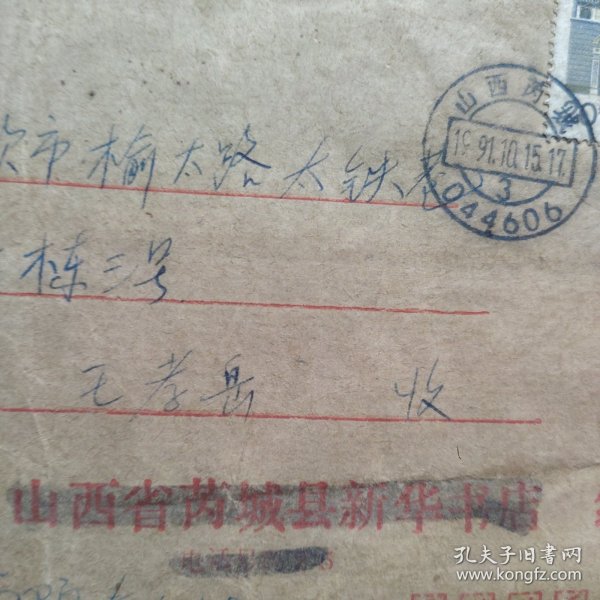 山西芮城
1991.10.15.17
3
044606
次市榆太路太铁
栋三号
王孝岳 收
山西省芮城县新华书店
电话
孔夫子旧书网
www.kongfz.com